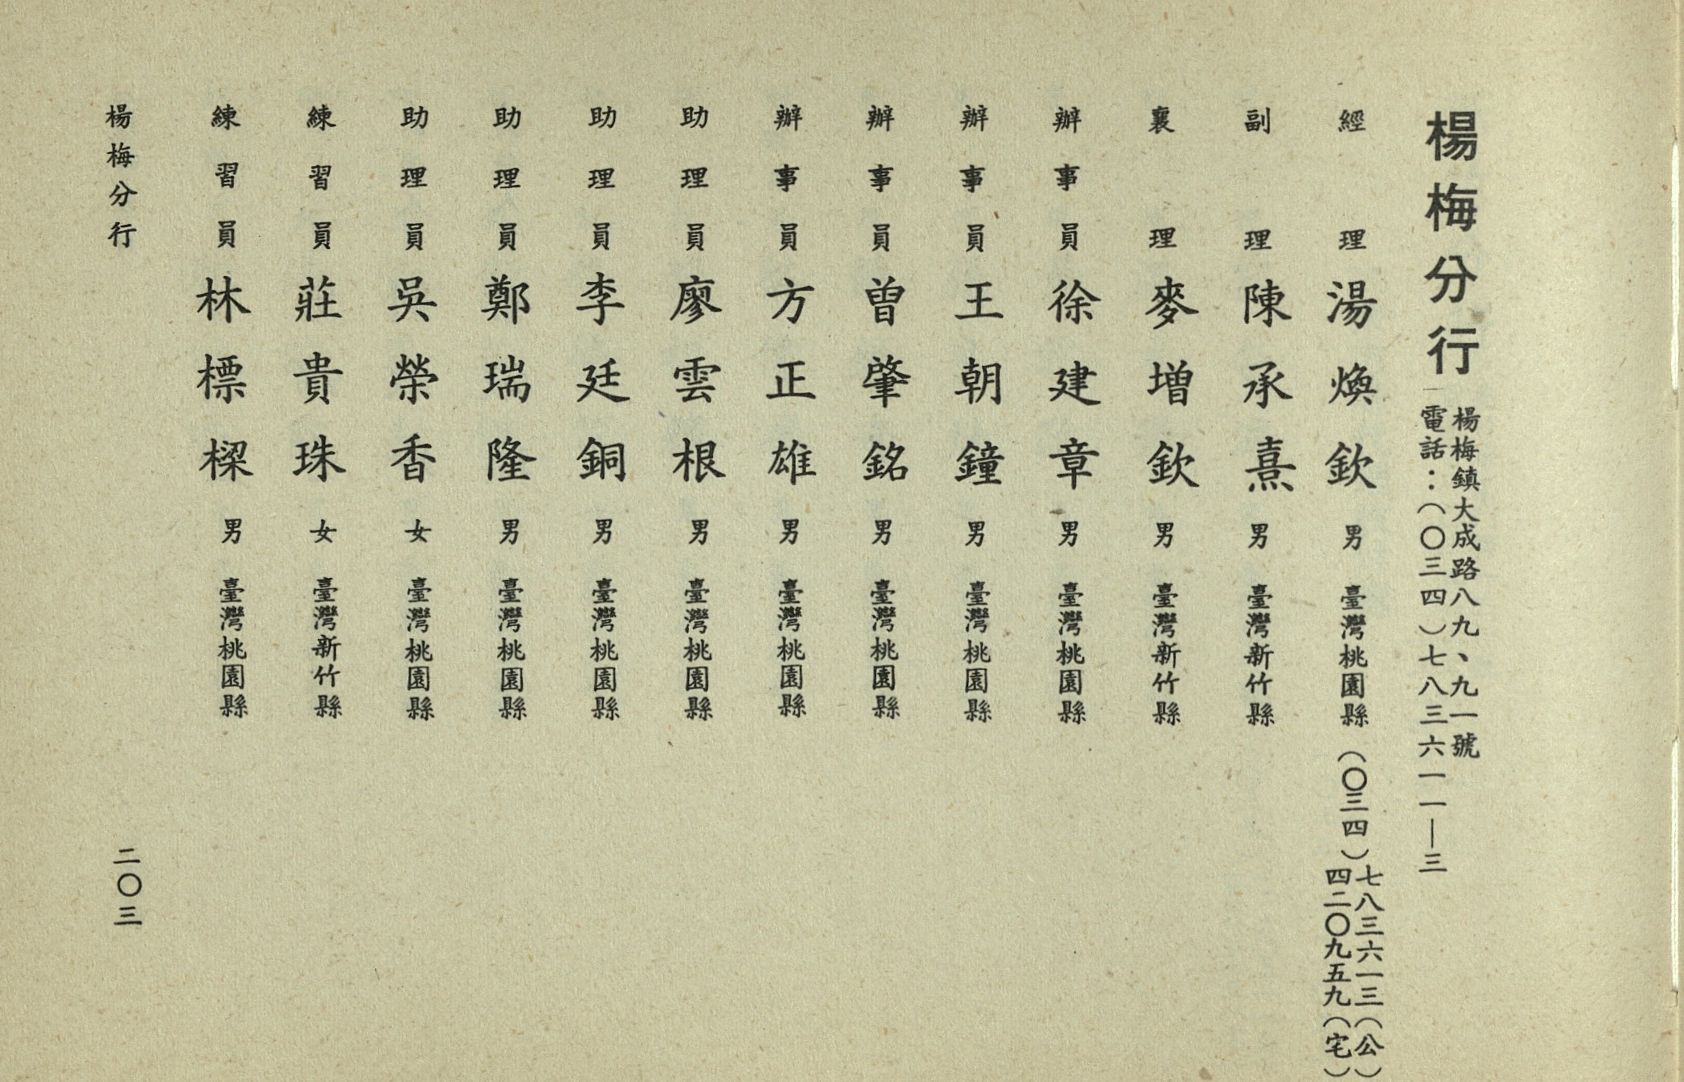 楊梅分行
楊梅鎮大成路八九、九一號
電話：（〇三四）七八三六一一—三
經理 湯煥欽 男 臺灣桃園縣 （〇三四）七八三六一三（公）
四二〇九五九（宅）
副理 陳承熹 男 臺灣新竹縣
襄理 麥增欽 男 臺灣新竹縣
辦事員 徐建章 男 臺灣桃園縣
辦事員 王朝鐘 男 臺灣桃園縣
辦事員 曾肇銘 男 臺灣桃園縣
辦事員 方正雄 男 臺灣桃園縣
助理員 廖雲根 男 臺灣桃園縣
助理員 李廷銅 男 臺灣桃園縣
助理員 鄭瑞隆 男 臺灣桃園縣
助理員 吳榮香 女 臺灣桃園縣
練習員 莊貴珠 女 臺灣新竹縣
練習員 林標樑 男 臺灣桃園縣
楊梅分行
二〇三